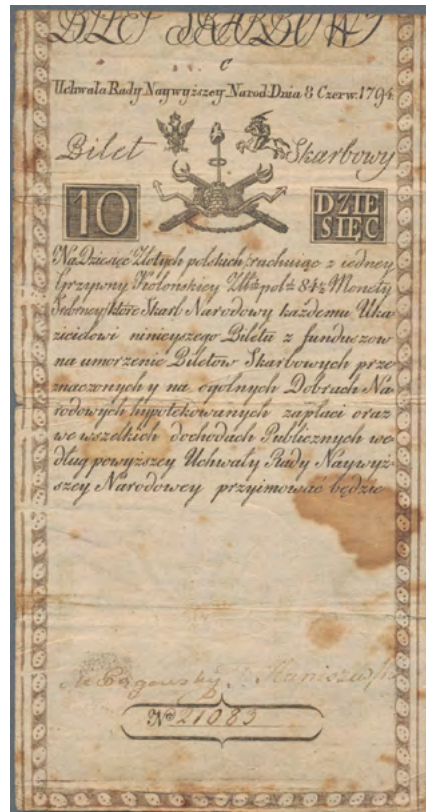 BILET SKARBOWY
C
Uchwała Rady Naywyższey Narod: Dnia 8 Czerw: 1794
Bilet Skarbowy
10
DZIE
SIĘC
Na Dziesięć Złotych polskich, rachuiąc z iedney
Grzywny Kolońskiey Złt: pol: 84½ Monety
Srebrney, które Skarb Narodowy każdemu Uka-
zicielowi ninieyszego Biletu z funduszow
na umorzenie Biletow Skarbowych prze-
znaczonych y na ogolnych Dobrach Na-
rodowych hypotekowanych zapłaci oraz
we wszelkich dochodach Publicznych we-
dług powyższey Uchwały Rady Naywyż-
szey Narodowey przyimować będzie
Staniszewski
No 21083